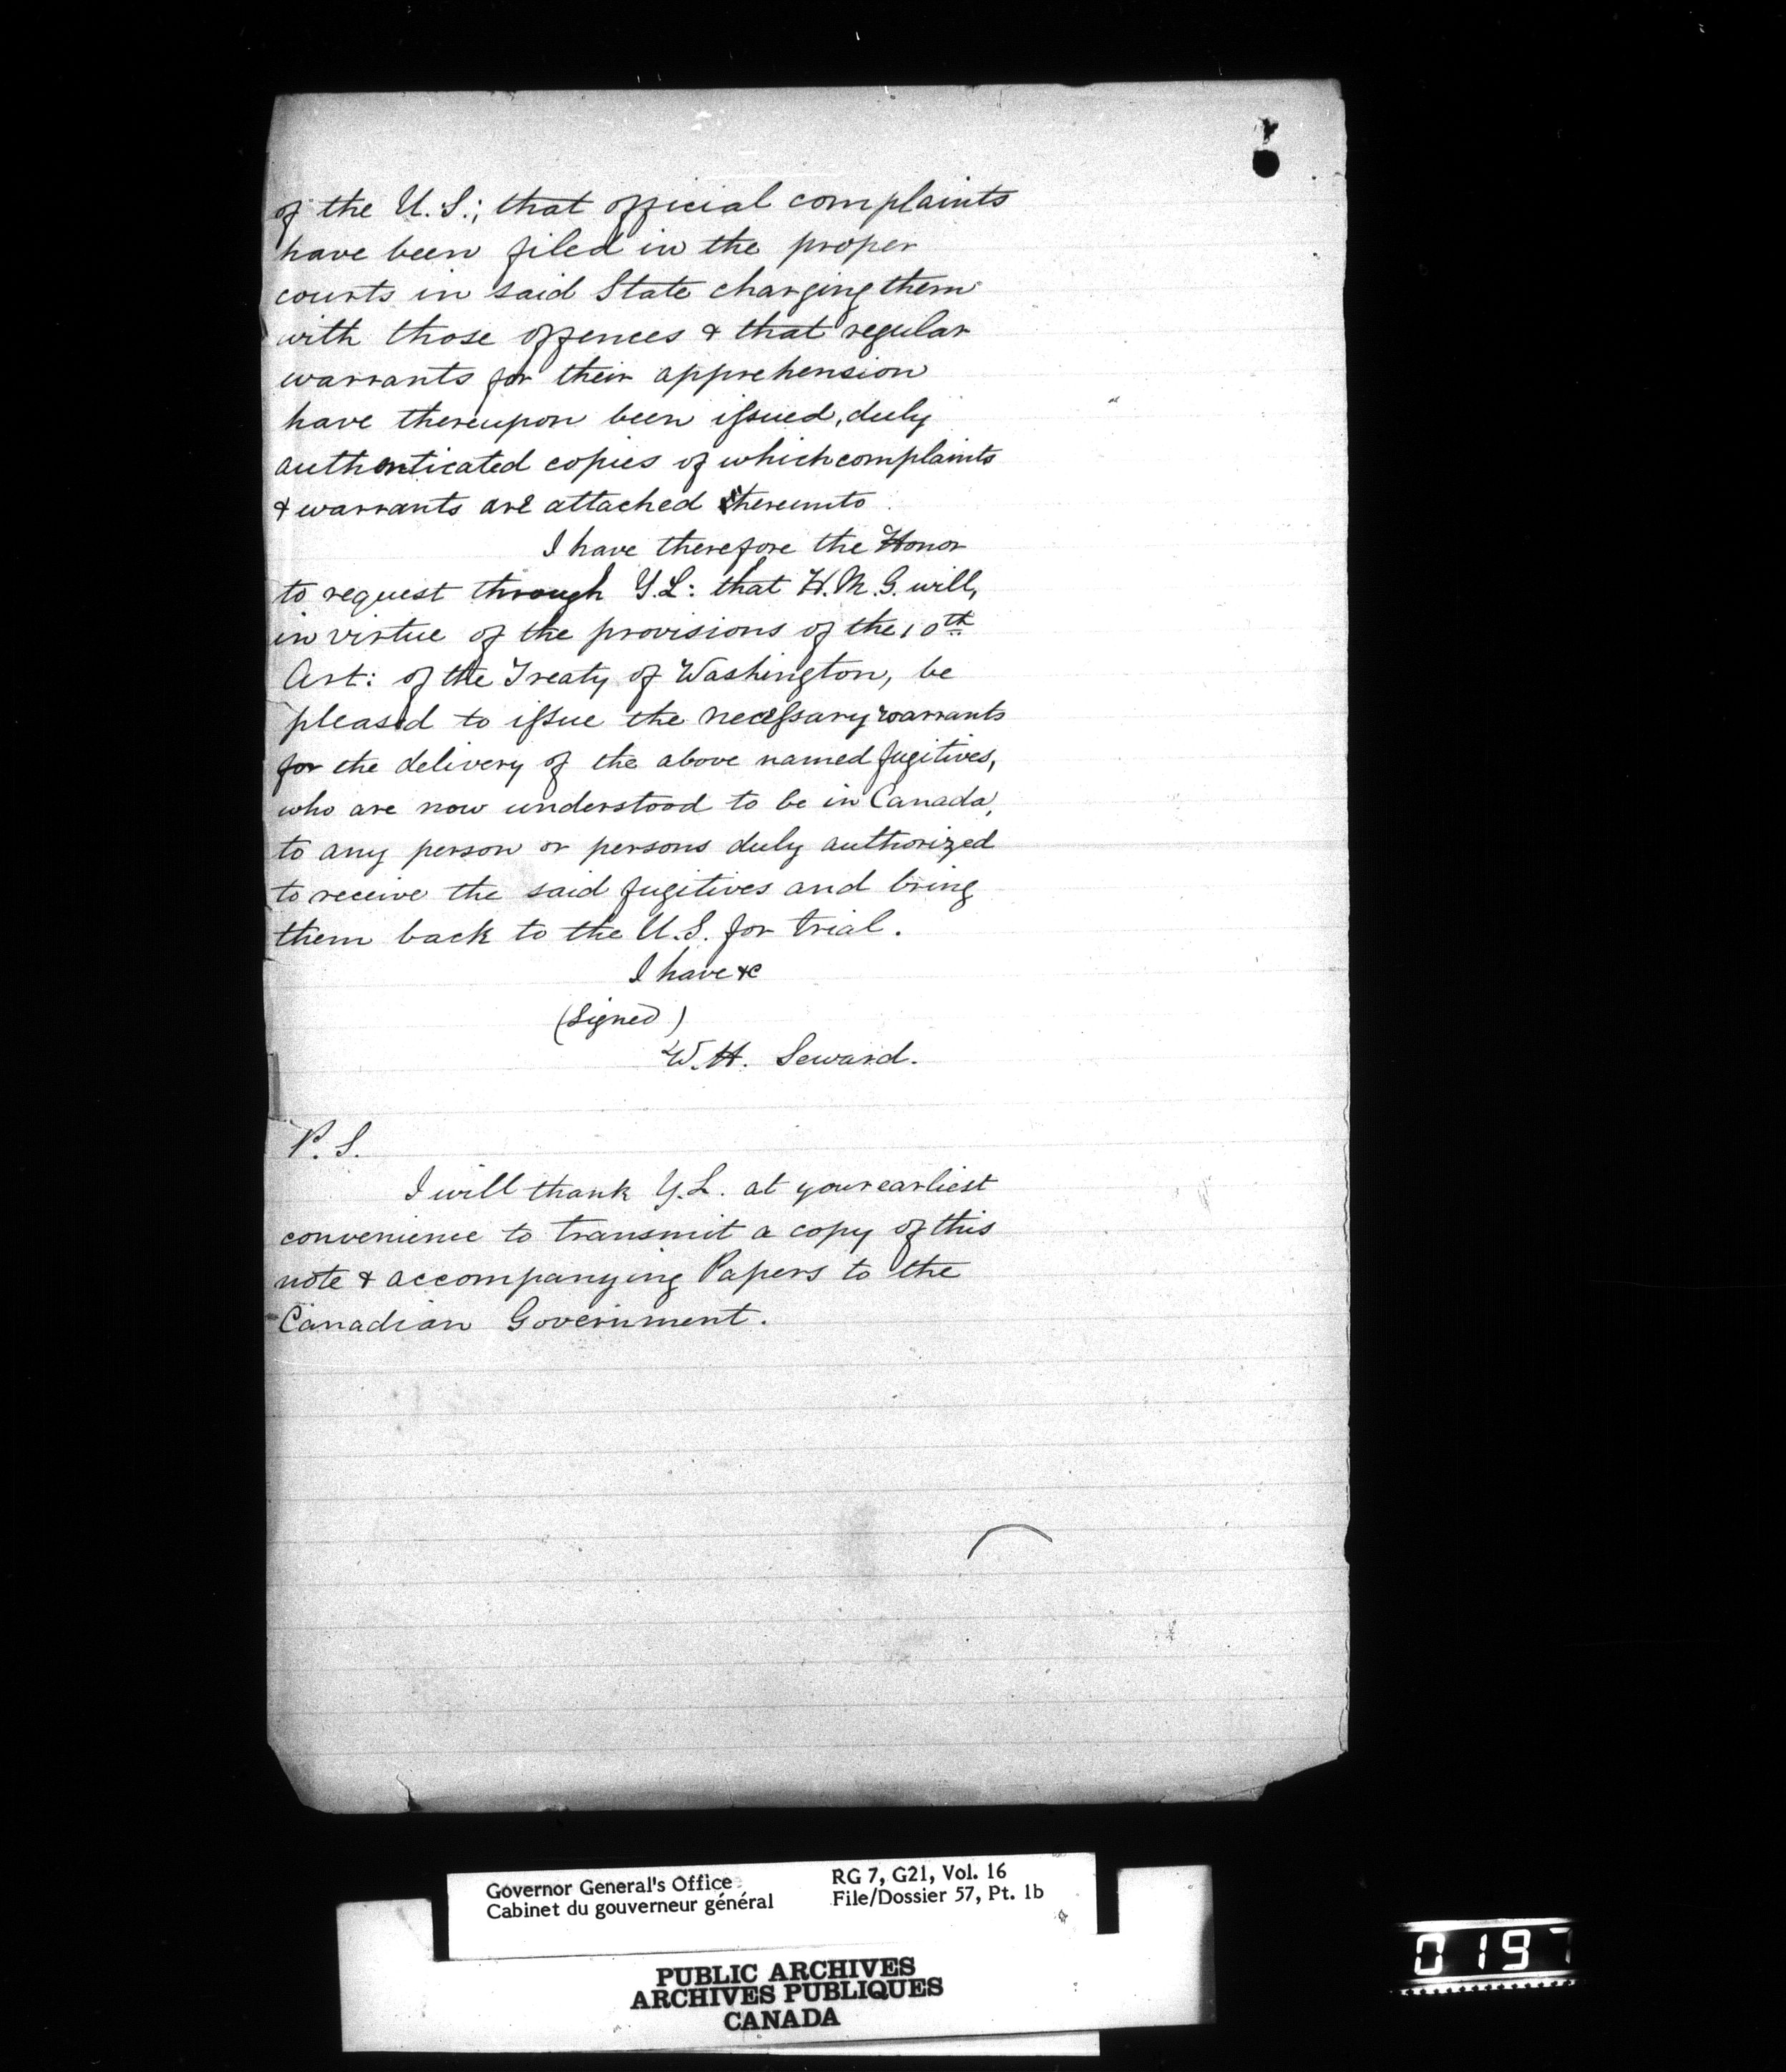 of the U.S.; that official complaints
have been filed in the proper
courts in said State charging them
with those offences & that regular
warrants for their apprehension
have thereupon been issued, duly
authenticated copies of which complaints
& warrants are attached thereunto.
I have therefore the Honor
to request through Y.L: that H.M.G. will,
in virtue of the provisions of the 10th
Art: of the Treaty of Washington, be
pleased to issue the necessary warrants
for the delivery of the above named fugitives,
who are now understood to be in Canada,
to any person or persons duly authorized
to receive the said fugitives and bring
them back to the U.S. for trial.
I have &c
(Signed)
W.H. Seward.
P.S.
I will thank Y.L. at your earliest
convenience to transmit a copy of this
note & accompanying Papers to the
Canadian Government.
Governor General's Office
Cabinet du gouverneur général
RG 7, G21, Vol. 16
File/Dossier 57, Pt. 1b
PUBLIC ARCHIVES
ARCHIVES PUBLIQUES
CANADA
0197